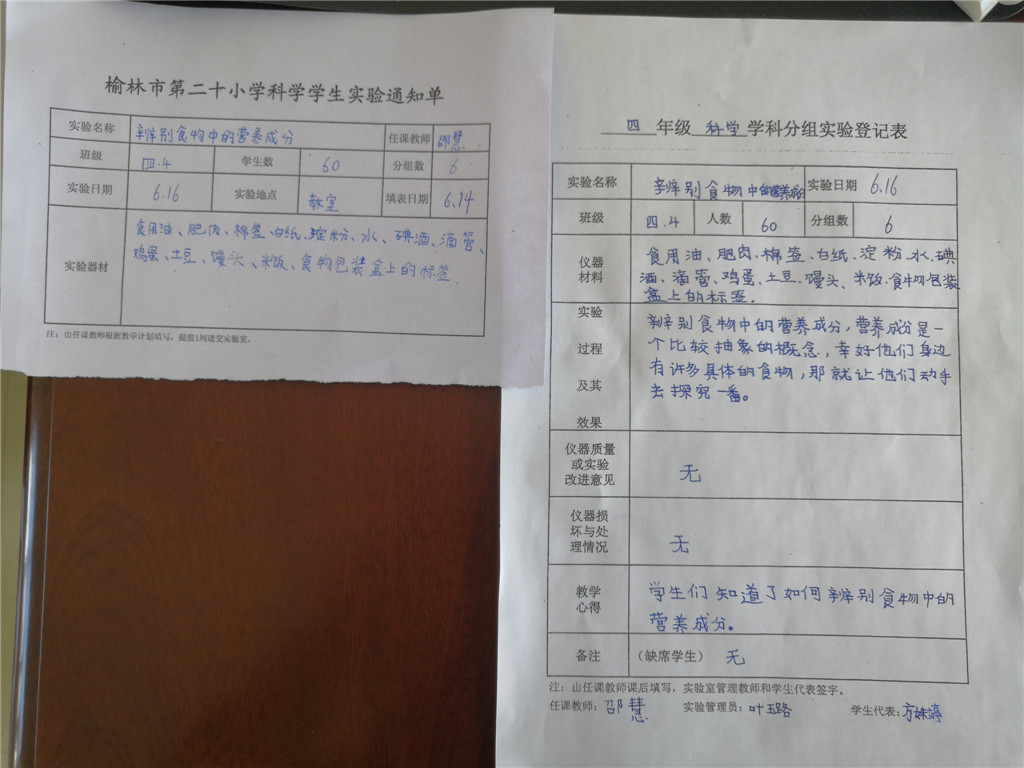 榆林市第二十小学科学学生实验通知单
实验名称 辨别食物中的营养成分 任课教师 邵慧
班级 四.4 学生数 60 分组数 6
实验日期 6.16 实验地点 教室 填表日期 6.14
实验器材 食用油、肥肉、棉签、白纸、淀粉、水、碘酒、滴管、
鸡蛋、土豆、馒头、米饭、食物包装盒上的标签.
注：由任课教师根据教学计划填写，提前1周送交实验室。
四 年级 科学 学科分组实验登记表
实验名称 辨别食物中的营养成分 实验日期 6.16
班级 四.4 人数 60 分组数 6
仪器
材料
食用油、肥肉、棉签、白纸、淀粉、水、碘
酒、滴管、鸡蛋、土豆、馒头、米饭、食物包装
盒上的标签.
实验
过程
及其
效果
辨别食物中的营养成分，营养成分是一
个比较抽象的概念，幸好他们身边
有许多具体的食物，那就让他们动手
去探究一番。
仪器质量
或实验
改进意见
无
仪器损
坏与处
理情况
无
教学
心得
学生们知道了如何辨别食物中的
营养成分。
备注 （缺席学生） 无
注：由任课教师课后填写，实验室管理教师和学生代表签字。
任课教师：邵慧 实验管理员：叶玉路 学生代表：方姝婷